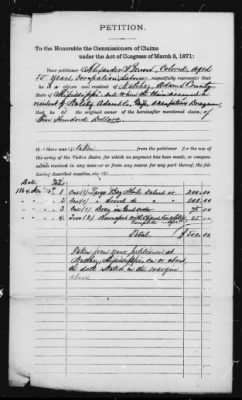 PETITION.
To the Honorable the Commissioners of Claims
under the Act of Congress of March 3, 1871:
Your petitioner Alexander Colored, aged
55 years, occupation respectfully represents that
he is a citizen and resident of Natchez Adams County
Mississippi, and when the claim accrued a
resident of Natchez Adams Co. Miss, occupation Drayman,
that he is the original owner of the hereinafter mentioned claim, of
Five Hundred Dollars
That there was (1) taken from petitioner for the use of
the army of the United States, for which no payment has been made, or compen-
sation received in any manner or from any source for any part thereof, the fol-
lowing described supplies, etc (2):
Date
1 One (1) Large Bay Horse valued at 200.00
2 One (1) " " " 200.00
3 One (1) Dray in good order 75.00
4 Two (2) 25.00
Total $500.00
Taken from your petitioner at
Natchez, Mississippi on or about
the date stated in the margin
above